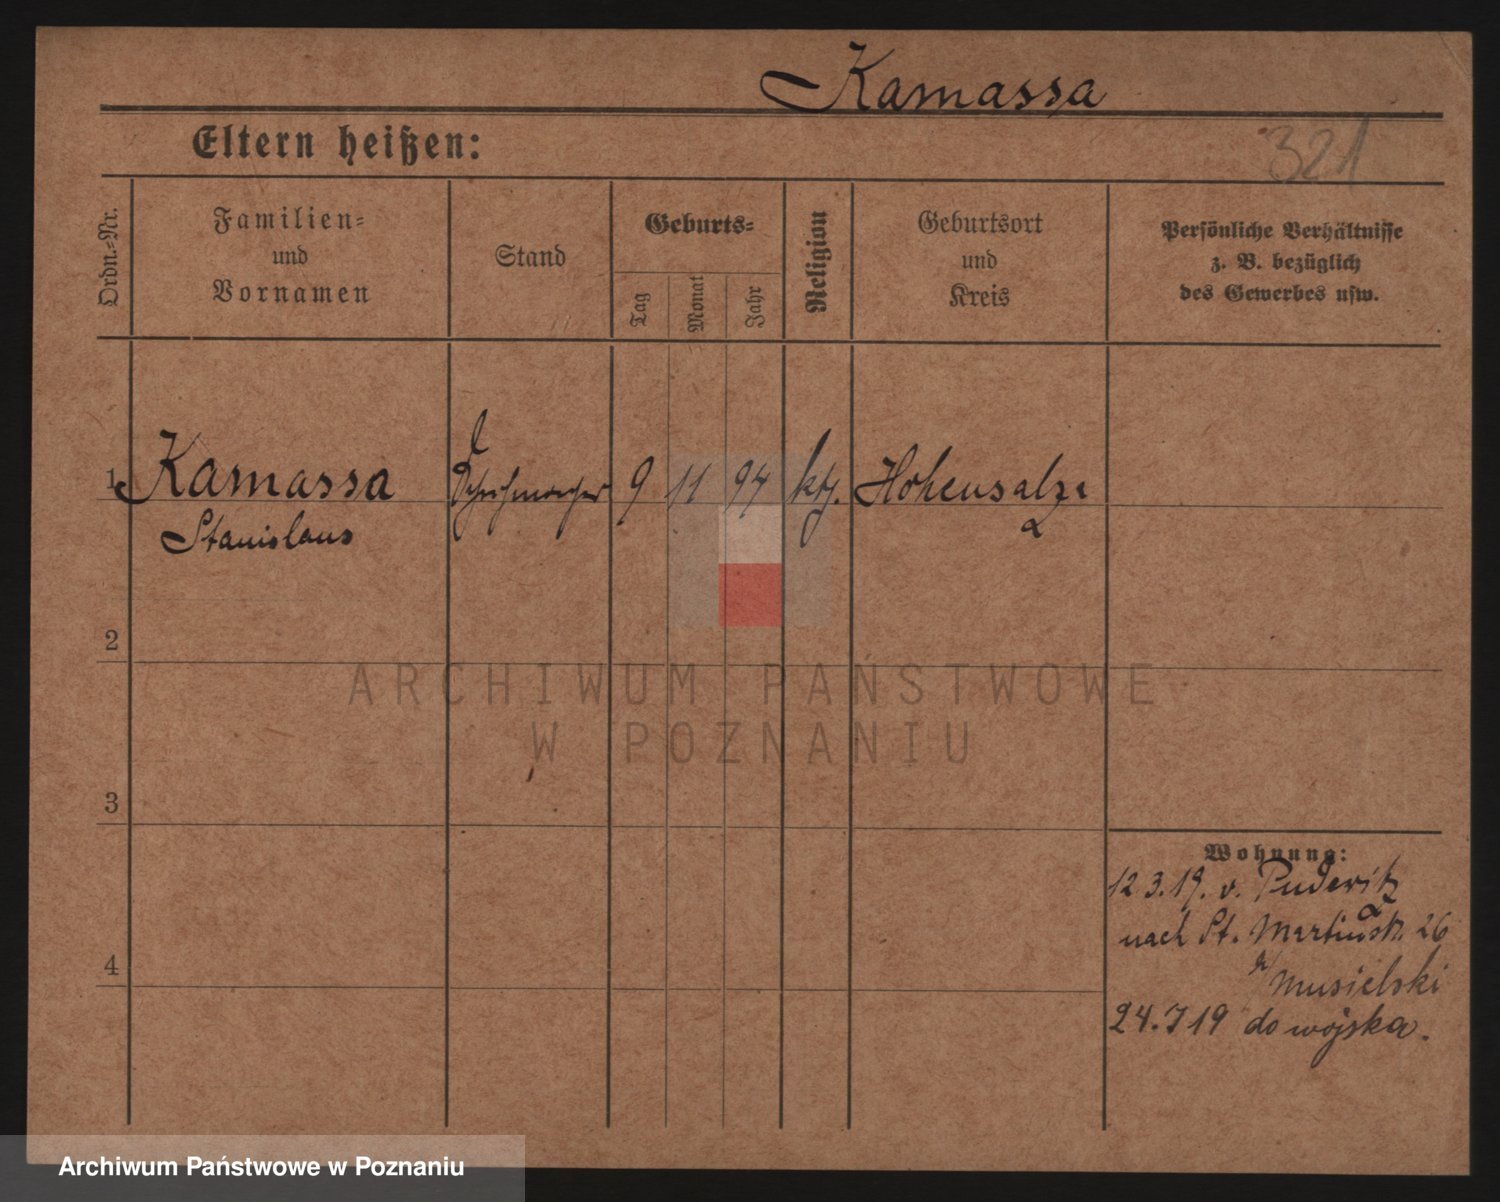 Kamassa
Eltern heißen:
321
Ordn.-Nr.
Familien-
und
Vornamen
Stand
Geburts-
Tag
Monat
Jahr
Religion
Geburtsort
und
Kreis
Persönliche Verhältnisse
z. B. bezüglich
des Gewerbes usw.
1 Kamassa l 9 11 94 kth. Hohensalza
Stanislaus
2
3
4
Wohnung:
12.3.19. v. Pudewitz
nach St. Martinstr. 26
b/ Musielski
24.7 19 do wojska.
ARCHIWUM PAŃSTWOWE
W POZNANIU
Archiwum Państwowe w Poznaniu